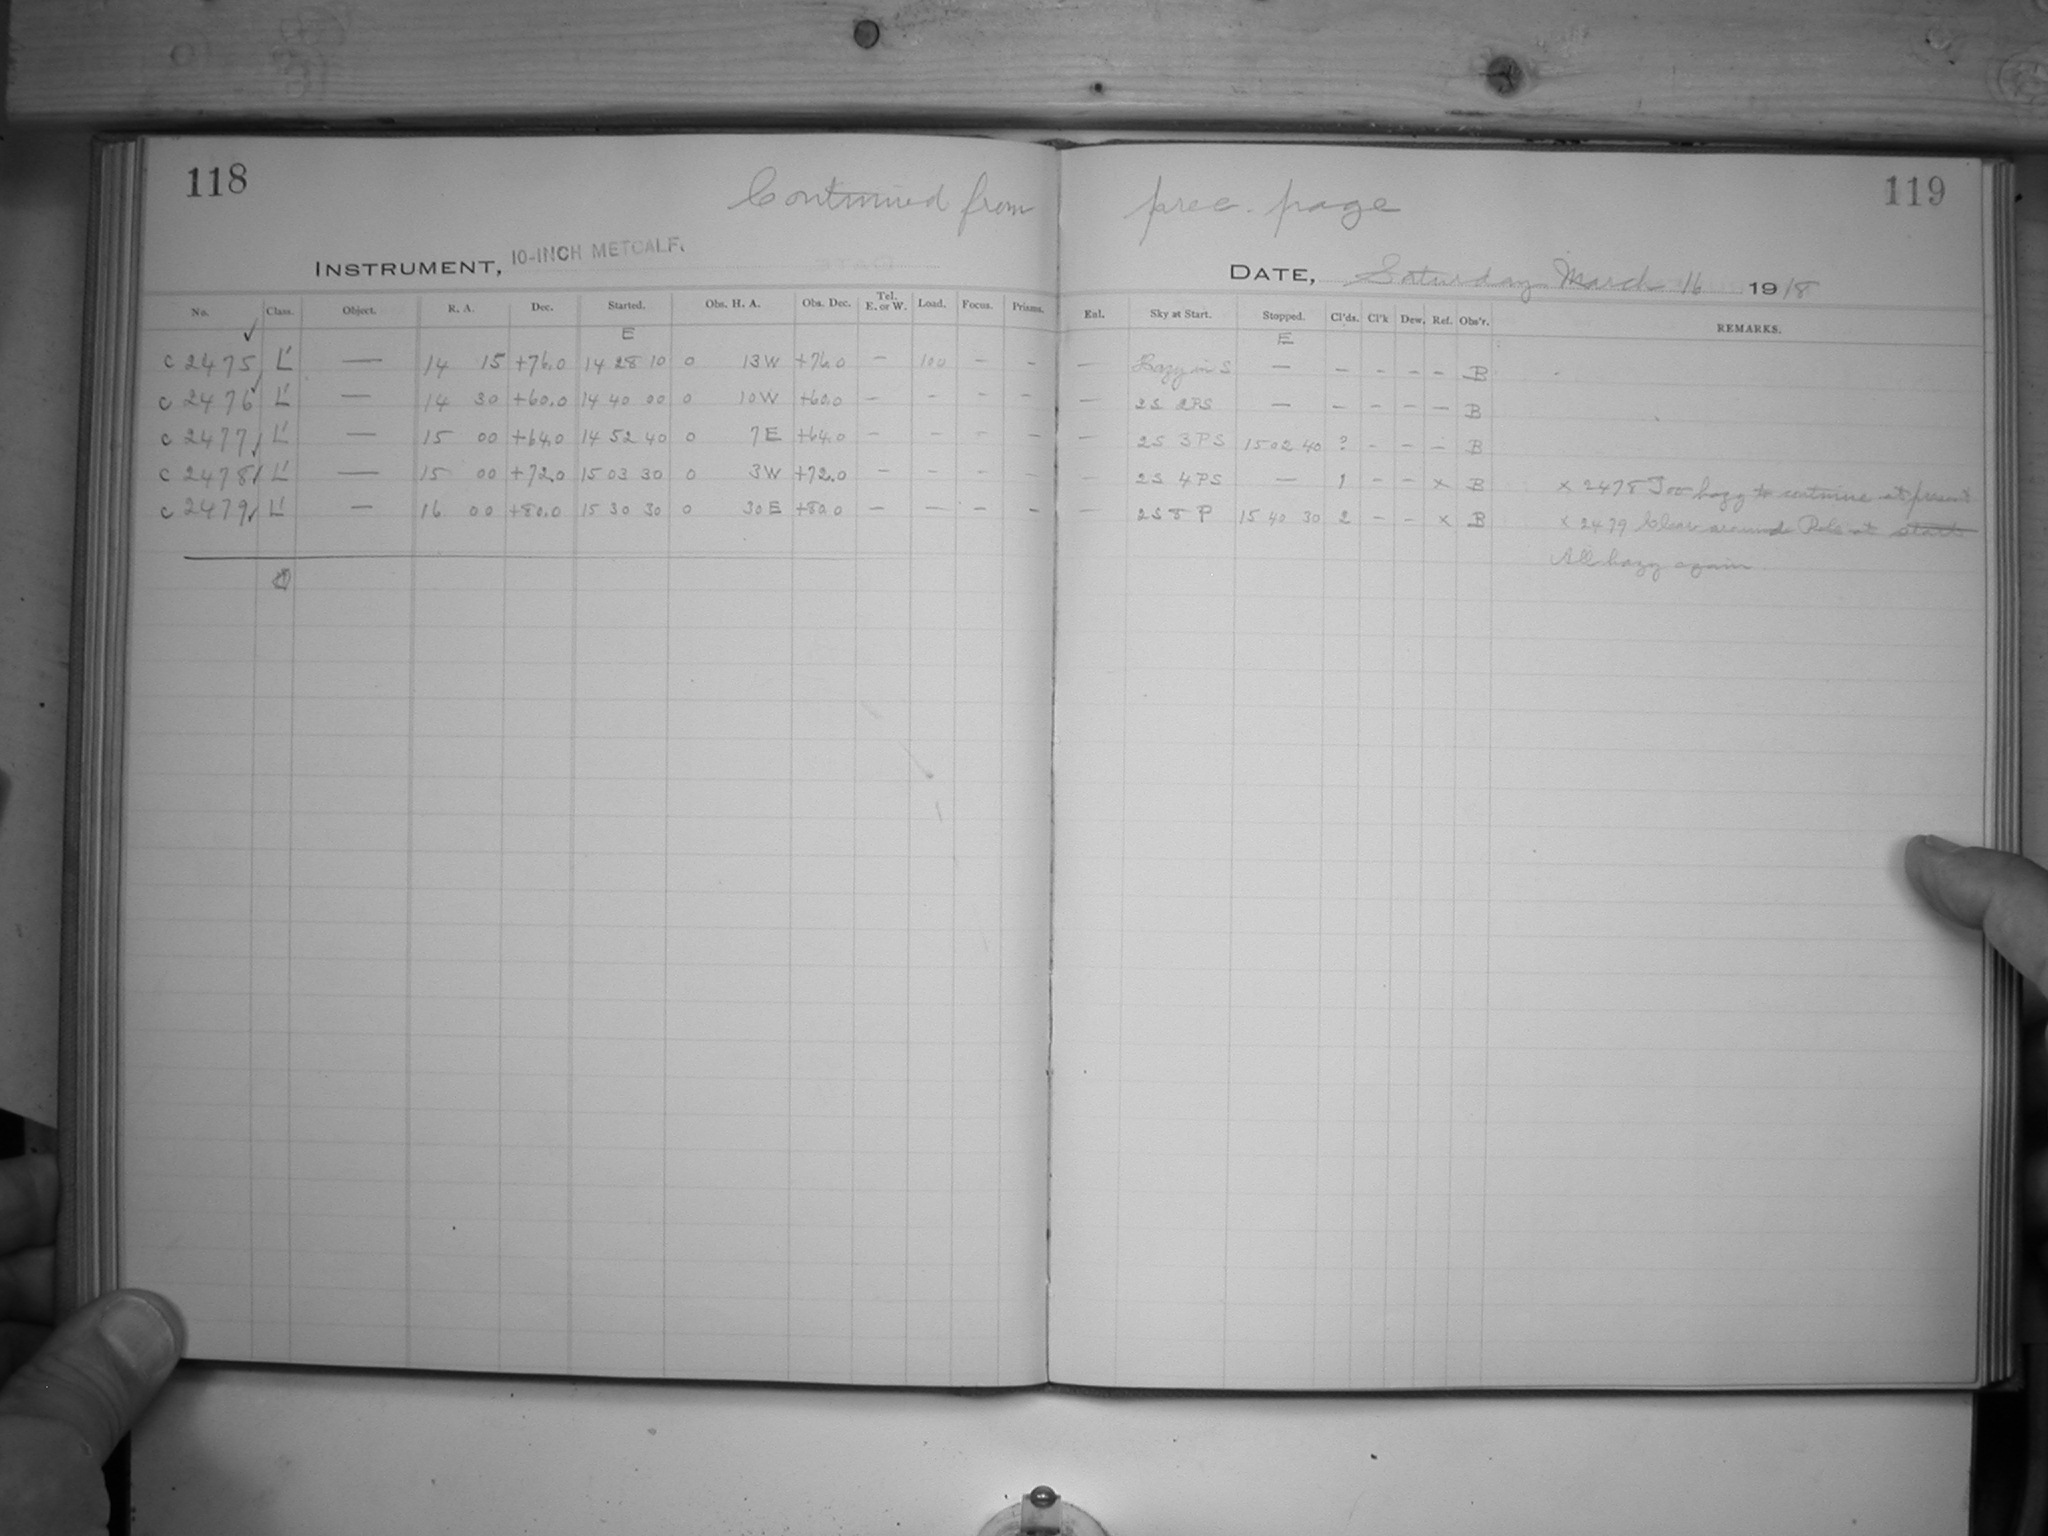 118
119
Continued from prec. page
INSTRUMENT, 10-INCH METCALF.
DATE, Saturday March 16 1918
No. Class. Object. R. A. Dec. Started. Obs. H. A. Obs. Dec. Tel. E. or W. Load. Focus. Prisms. Enl. Sky at Start. Stopped. Cl'ds. Cl'k Dew. Ref. Obs'r. REMARKS.
✓ E E
c 2475 L' — 14 15 +76.0 14 28 10 0 13W +76.0 – 100 – – — Hazy in S — – – – – B
c 2476 ✓ L' — 14 30 +60.0 14 40 00 0 10W +60.0 – – – – — 2S 2PS — – – – – B
c 2477 ✓ L' — 15 00 +64.0 14 52 40 0 7E +64.0 – – – – — 2S 3PS 15 02 40 ? – – – B
c 2478 ✓ L' — 15 00 +72.0 15 03 30 0 3W +72.0 – – – – — 2S 4PS — 1 – – x B x 2478 Too hazy to continue at present
c 2479 ✓ L' — 16 00 +80.0 15 30 30 0 30E +80.0 – – – – — 2S 8 P 15 40 30 2 – – x B x 2479 Clear around Pole at start
All hazy again.